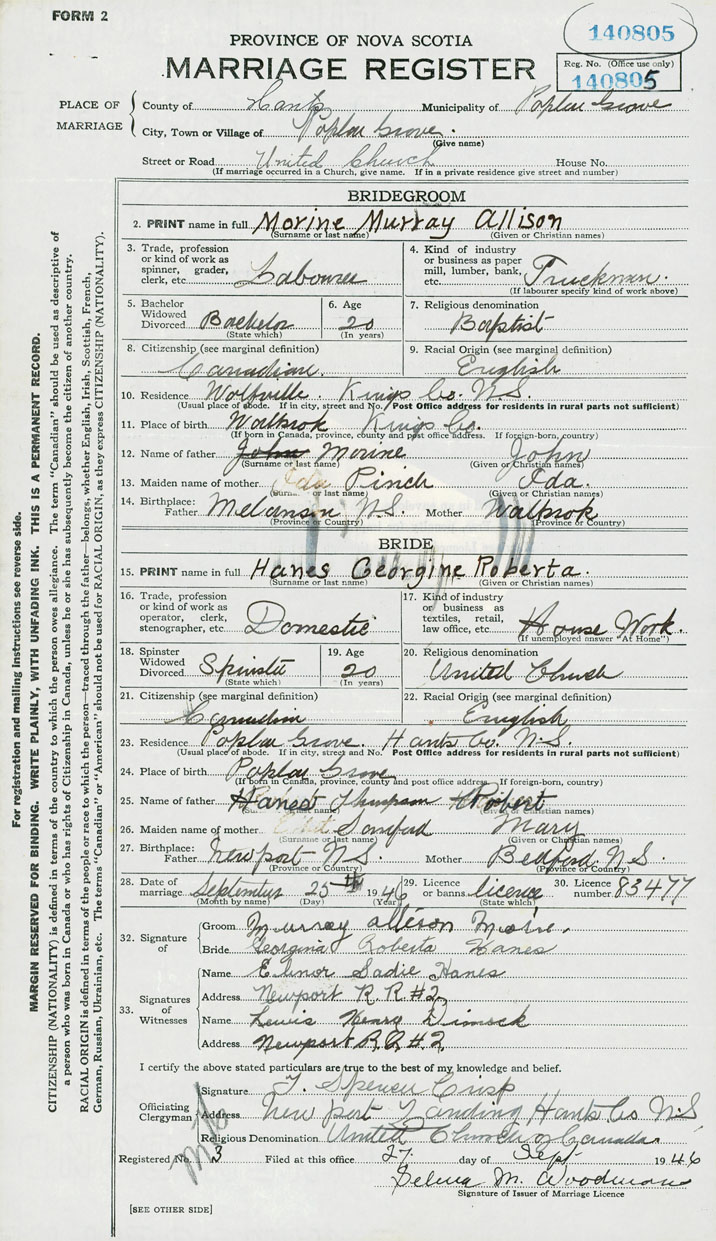 FORM 2
140805
PROVINCE OF NOVA SCOTIA
MARRIAGE REGISTER
Reg. No. (Office use only)
140805
PLACE OF MARRIAGE
County of Hants Municipality of Poplar Grove
City, Town or Village of Poplar Grove.
(Give name)
Street or Road United Church House No.
(If marriage occurred in a Church, give name. If in a private residence give street and number)
BRIDEGROOM
2. PRINT name in full Morine Murray Allison
(Surname or last name) (Given or Christian names)
3. Trade, profession or kind of work as spinner, grader, clerk, etc. Labourer
4. Kind of industry or business as paper mill, lumber, bank, etc. Truckman.
(If labourer specify kind of work above)
5. Bachelor Widowed Divorced Bachelor
(State which)
6. Age 20
(In years)
7. Religious denomination
Baptist
8. Citizenship (see marginal definition)
Canadian.
9. Racial Origin (see marginal definition)
English
10. Residence Wolfville. Kings Co. N.S.
(Usual place of abode. If in city, street and No. Post Office address for residents in rural parts not sufficient)
11. Place of birth Walbrok Kings Co.
(If born in Canada, province, county and post office address. If foreign-born, country)
12. Name of father John Morine John
(Surname or last name) (Given or Christian names)
13. Maiden name of mother Ida Pinch Ida.
(Surname or last name) (Given or Christian names)
14. Birthplace: Father Melanson N.S. Mother Walbrok
(Province or Country) (Province or Country)
BRIDE
15. PRINT name in full Hanes Georgine Roberta.
(Surname or last name) (Given or Christian names)
16. Trade, profession or kind of work as operator, clerk, stenographer, etc. Domestic
17. Kind of industry or business as textiles, retail, law office, etc. House Work.
(If unemployed answer "At Home")
18. Spinster Widowed Divorced Spinster
(State which)
19. Age 20
(In years)
20. Religious denomination
United Church
21. Citizenship (see marginal definition)
Canadian
22. Racial Origin (see marginal definition)
English
23. Residence Poplar Grove. Hants Co. N.S.
(Usual place of abode. If in city, street and No. Post Office address for residents in rural parts not sufficient)
24. Place of birth Poplar Grove
(If born in Canada, province, county and post office address. If foreign-born, country)
25. Name of father Hanes Thompson Robert
(Given or Christian names)
26. Maiden name of mother Sanford Mary
(Surname or last name) (Given or Christian names)
27. Birthplace: Father Newport N.S. Mother Bedford N.S.
(Province or Country) (Province or Country)
28. Date of marriage September 25th 1946
(Month by name) (Day) (Year)
29. Licence or banns licence
(State which)
30. Licence number 83477
32. Signature of
Groom Murray allison Morine.
Bride Georgina Roberta Hanes
33. Signatures of Witnesses
Name Elinor Sadie Hanes
Address Newport R R #2
Name Lewis Henry Dimock
Address Newport R.R. #2.
I certify the above stated particulars are true to the best of my knowledge and belief.
Officiating Clergyman
Signature T. Spencer Crisp
Address Newport Landing Hants Co N.S
Religious Denomination United Church of Canada.
Registered No. 3 Filed at this office 27 day of Sept 1946
Selina M. Woodman
Signature of Issuer of Marriage Licence
[SEE OTHER SIDE]
For registration and mailing instructions see reverse side.
MARGIN RESERVED FOR BINDING. WRITE PLAINLY, WITH UNFADING INK. THIS IS A PERMANENT RECORD.
CITIZENSHIP (NATIONALITY) is defined in terms of the country to which the person owes allegiance. The term "Canadian" should be used as descriptive of
a person who was born in Canada or who has rights of Citizenship in Canada, unless he or she has subsequently become the citizen of another country.
RACIAL ORIGIN is defined in terms of the people or race to which the person—traced through the father—belongs, whether English, Irish, Scottish, French,
German, Russian, Ukrainian, etc. The terms "Canadian" or "American" should not be used for RACIAL ORIGIN, as they express CITIZENSHIP (NATIONALITY).